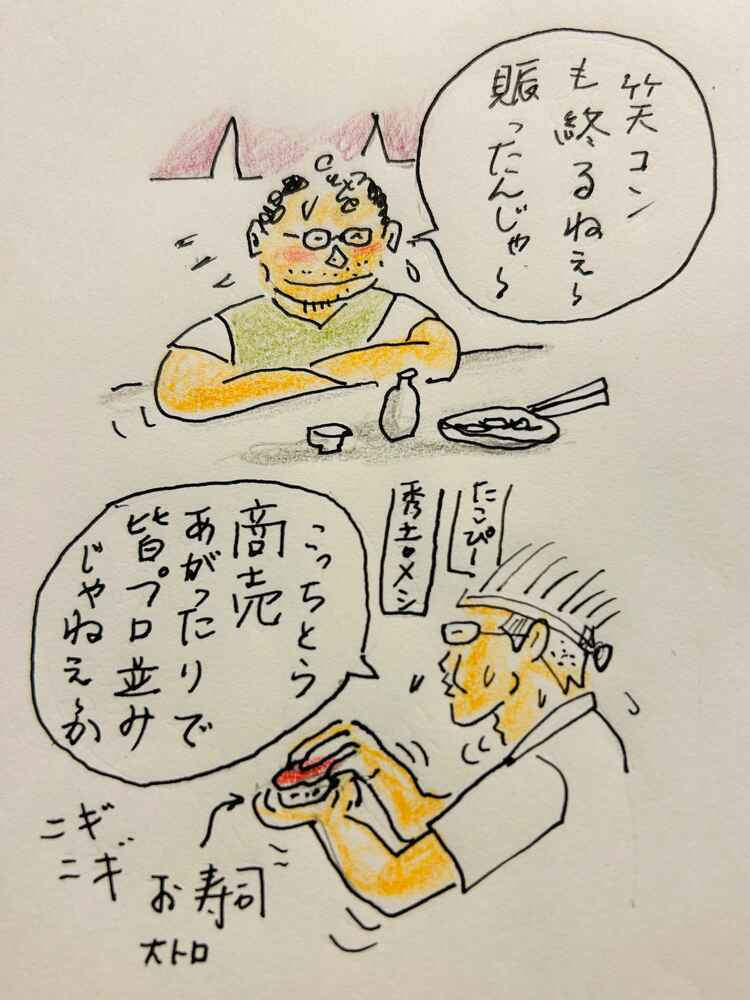 笑コン
も終るねぇ〜
賑ったんじゃ〜
たこぴー
秀土ロメシ
こっちとら
商売
あがったりで
皆プロ並み
じゃねぇか
ニギ
ニギ
お寿司
大トロ